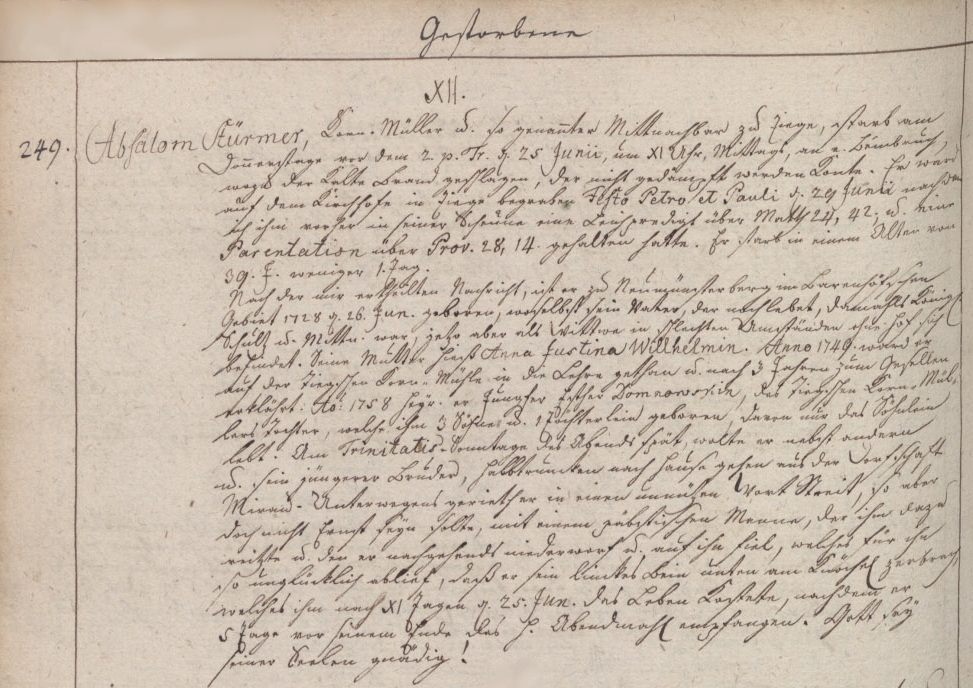 Gestorbene
XII.
249. Absalom Stürmer, Korn-Müller u. so genannter Mittnachbar zu Ziege, starb am
Donnerstage vor dem 2. p. Tr. d. 25 Junii, um XI Uhr, Mittags, an e. Beinbruch,
wozu der Kalte Brand geschlagen, der nicht gedämpft werden konte. Er ward
auf dem Kirchhofe in Ziege begraben Festo Petro et Pauli d. 29 Junii nachdem
ich ihm vorher in seiner Scheune eine Leichpredigt über Matth 24, 42. u. eine
Parentation über Prov. 28, 14. gehalten hatte. Er starb in einem Alter von
39. J. weniger 1. Tag.
Nach der mir ertheilten Nachricht, ist er zu Neumünsterberg im Barenhöfschen
Gebiet 1728 d. 26. Jun. geboren, woselbst sein Vater, der noch lebet, damahls Königl
Schultz u. Mittn. war, jetzo aber als Wittwer in schlechten Umständen ohne Hof sich
befindet. Seine Mutter hiess Anna Justina Willhelmin. Anno 1749. ward er
auf der Ziegschen Korn-Mühle in die Lehre gethan u. nach 3 Jahren zum Gesellen
erklährt. Ao: 1758 heyr. er Jungfer Esther Domnowskin, des Ziegschen Korn-Mül-
lers Tochter, welche ihm 3 Söhne u. 1 Töchterlein geboren, davon nur das Söhnlein
lebt. Am Trinitatis-Sonntage des Abends spät, wolte er nebst andern
u. sein jüngerer Bruder, halbtrunken nach Hause gehen aus der Dorfschaft
Mirau. Unterwegens gerieth er in einen unnützen Wort Streit, so aber
doch nicht Ernst seyn solte, mit einem päbstischen Manne, der ihn dazu
reitzte u. den er nachgehends niederworf u. auf ihn fiel, welches für ihn
so unglücklich ablief, daß er sein linckes Bein unten am Knöchel zerbrach,
welches ihm nach XI Tagen d. 25. Jun. das Leben kostete, nachdem er
5 Tage vor seinem Ende das H. Abendmahl empfangen. Gott sey
seiner Seelen gnädig!